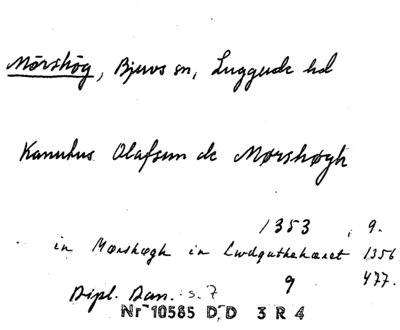 Mörshög, Bjuvs sn, Luggude hd
Kanutus Olafsun de Mørshøgh
1353 , 9.
in Mørshøgh in Lwdguthehæret 1356
9 477.
Dipl. Dan. s. 7
Nr 10585 D D 3 R 4